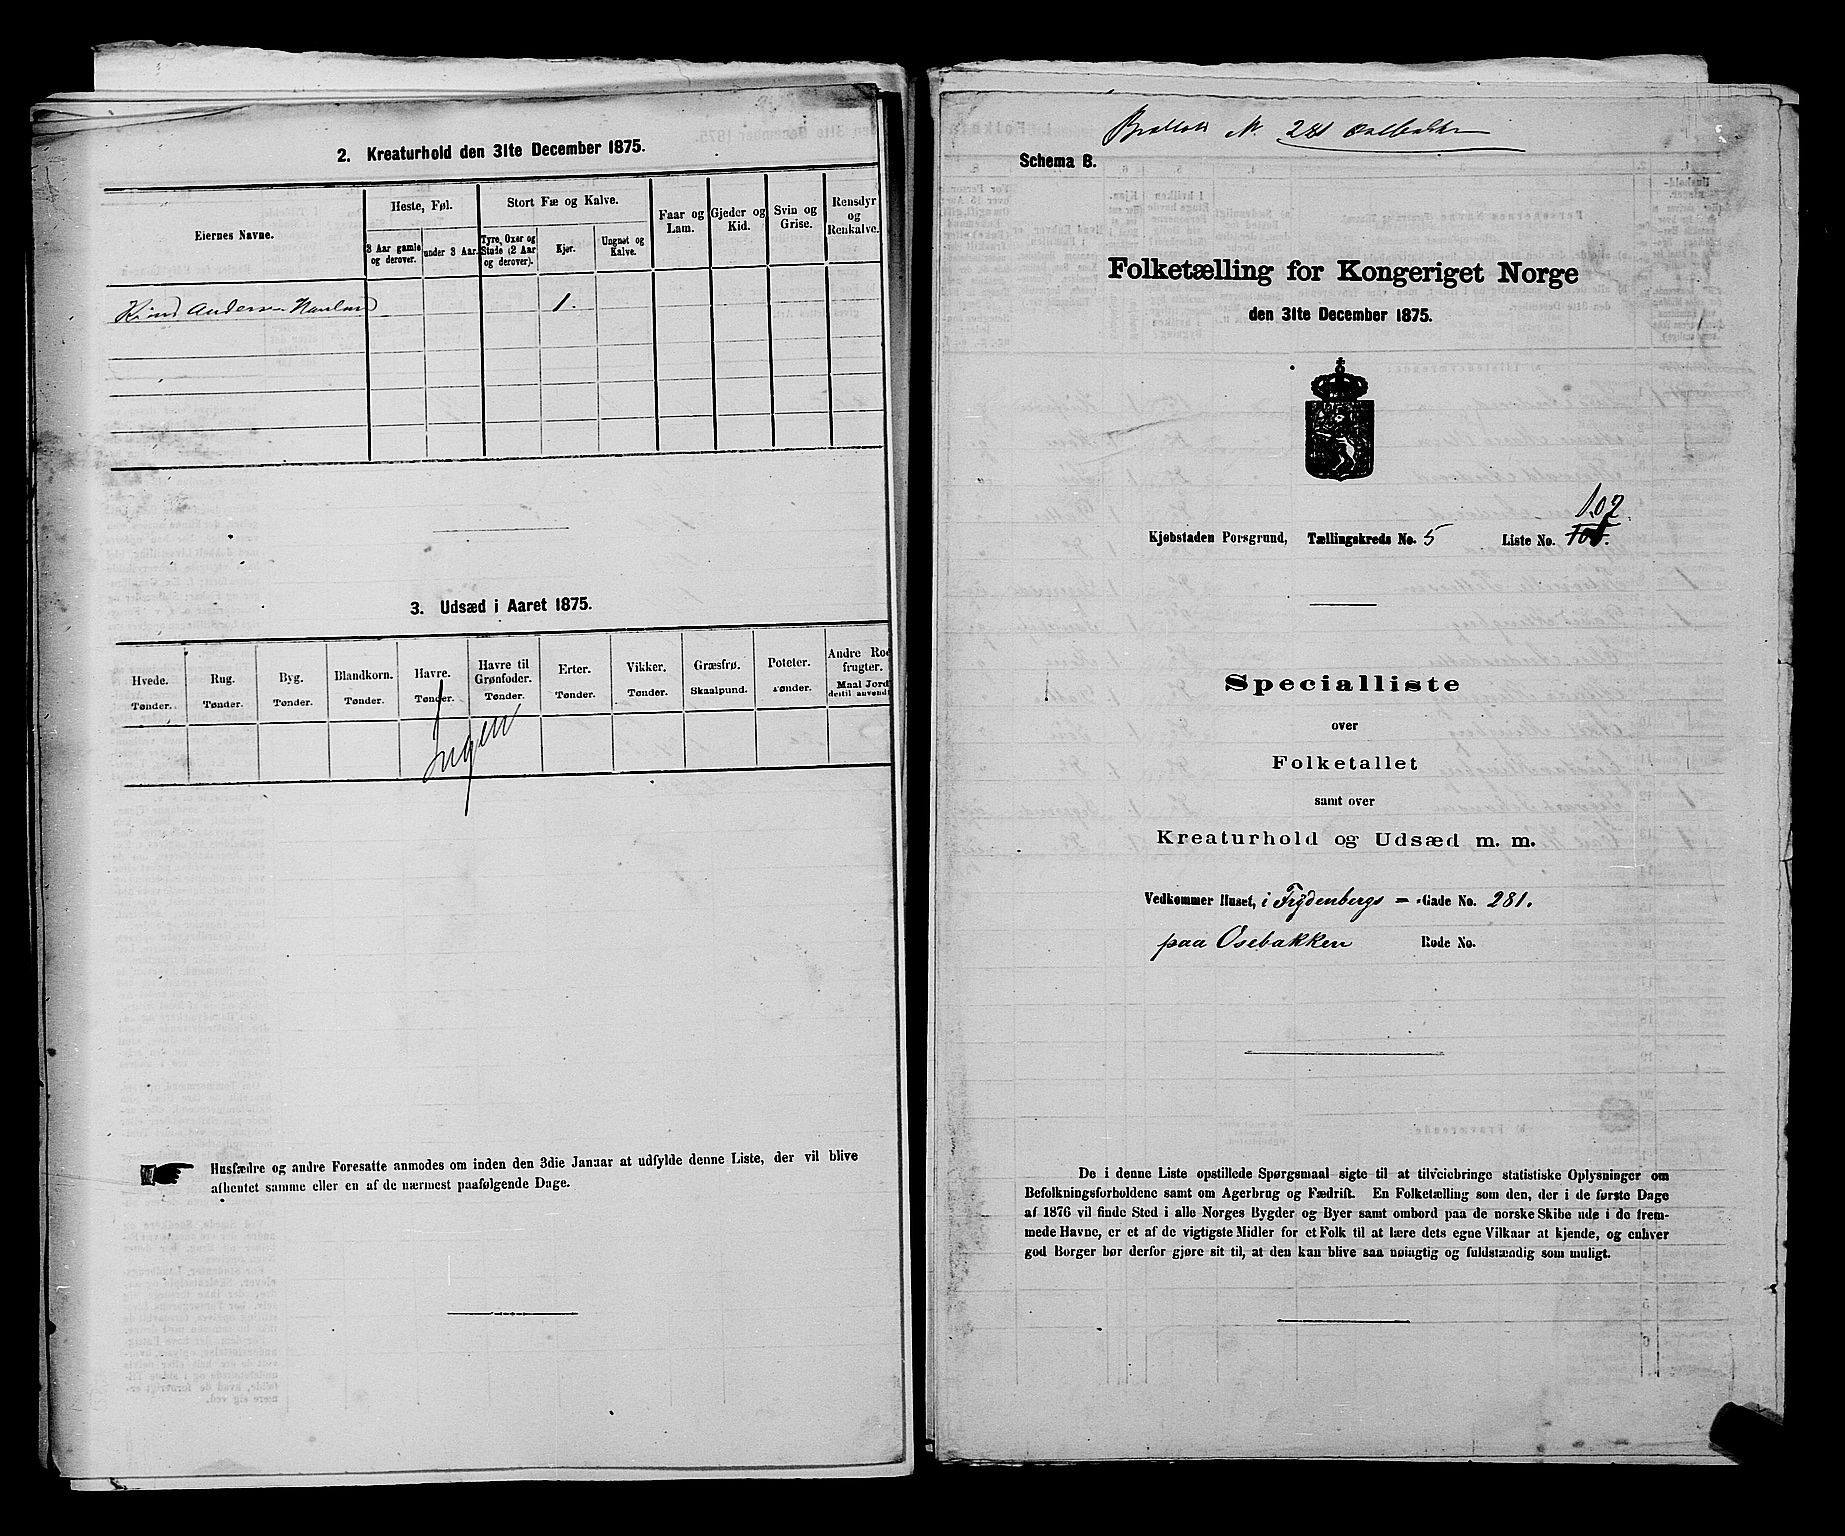 2. Kreaturhold den 31te December 1875.
Eiernes Navne.
Heste, Føl.
Stort Fæ og Kalve.
Faar og Lam.
Gjeder og Kid.
Svin og Grise.
Rensdyr og Renkalve.
3 Aar gamle og derover.
under 3 Aar.
Tyre, Oxer og Stude (2 Aar og derover).
Kjør.
Ungnøt og Kalve.
Anders 1.
3. Udsæd i Aaret 1875.
Hvede. Rug. Byg. Blandkorn. Havre. Havre til Grønfoder. Erter. Vikker. Græsfrø. Poteter. Andre Rodfrugter.
Tønder. Tønder. Tønder. Tønder. Tønder. Tønder. Tønder. Tønder. Skaalpund. Tønder. Maal Jord dertil anvendt
Ingen
Husfædre og andre Foresatte anmodes om inden den 3die Januar at udfylde denne Liste, der vil blive
afhentet samme eller en af de nærmest paafølgende Dage.
№ 281 Osebakken
Schema B.
Folketælling for Kongeriget Norge
den 31te December 1875.
102
Kjøbstaden Porsgrund, Tællingskreds No. 5 Liste No.
Specialliste
over
Folketallet
samt over
Kreaturhold og Udsæd m. m.
Vedkommer Huset, i Frydenbergs = -Gade No. 281.
paa Osebakken Rode No.
De i denne Liste opstillede Spørgsmaal sigte til at tilveiebringe statistiske Oplysninger om
Befolkningsforholdene samt om Agerbrug og Fædrift. En Folketælling som den, der i de første Dage
af 1876 vil finde Sted i alle Norges Bygder og Byer samt ombord paa de norske Skibe ude i de frem-
mede Havne, er et af de vigtigste Midler for et Folk til at lære dets egne Vilkaar at kjende, og enhver
god Borger bør derfor gjøre sit til, at den kan blive saa nøiagtig og fuldstændig som muligt.